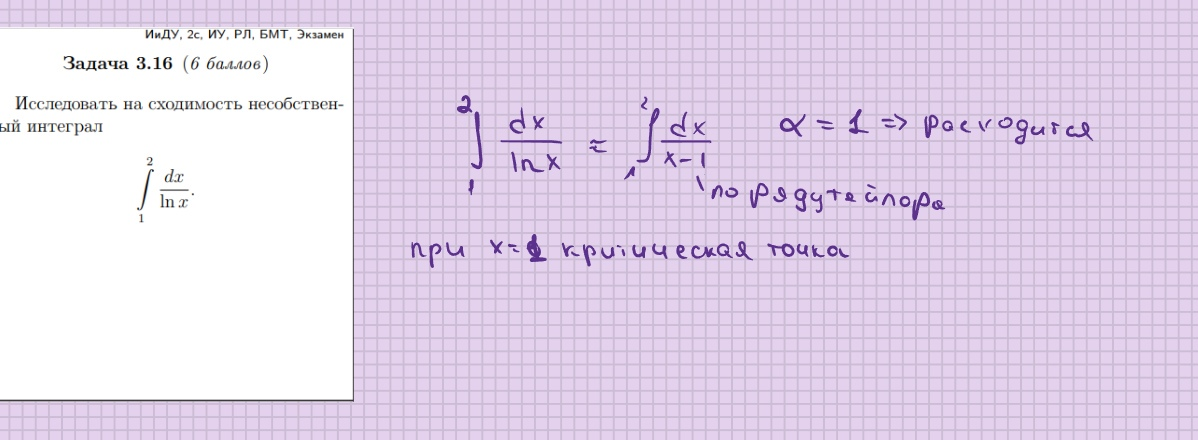 ИиДУ, 2с, ИУ, РЛ, БМТ, Экзамен
Задача 3.16 (6 баллов)
Исследовать на сходимость несобствен-
ый интеграл
∫₁² dx/ln x.
∫₁² dx/ln x ≈ ∫₁² dx/x-1 α = 1 => расходится
по ряду тейлора
при x=1 критическая точка